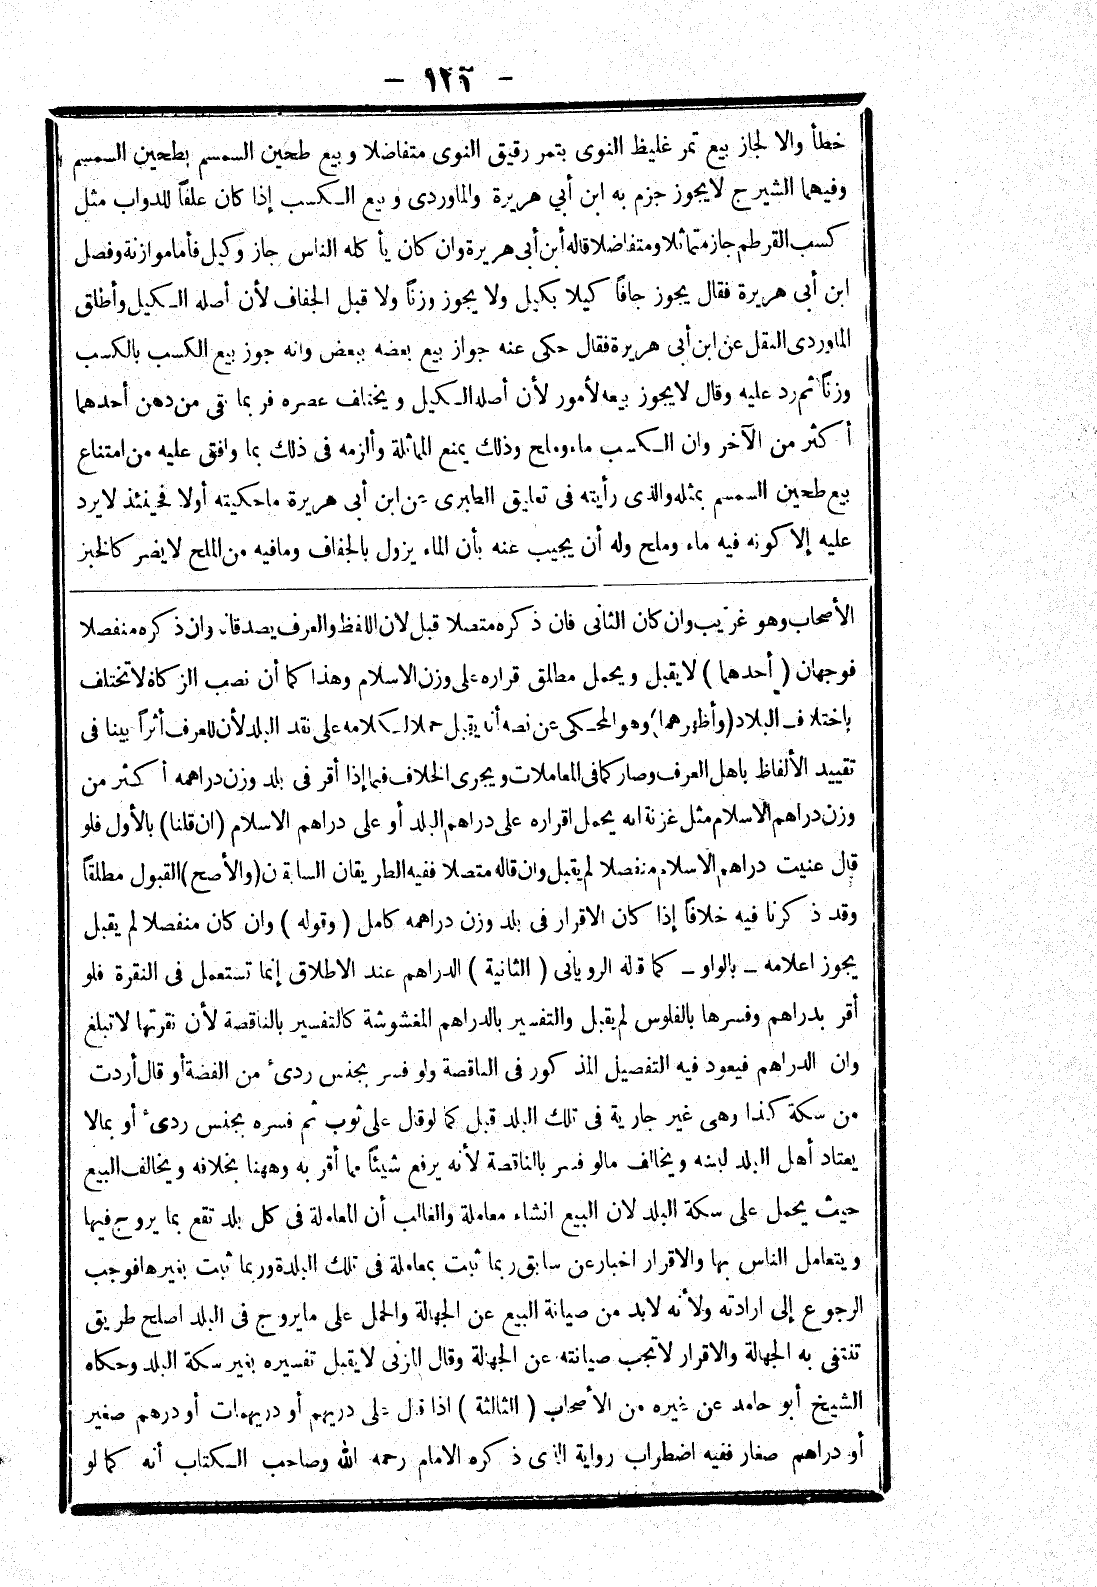 — ١٢٦ —
خطأ والا لجاز بيع تمر غليظ النوى بتمر رقيق النوى متفاضلا وبيع طحين السمسم بطحين السمسم
وفيهما الشيرج لايجوز جزم به ابن أبي هريرة والماوردى وبيع الكسب إذا كان علفاً للدواب مثل
كسب القرطم جاز متماثلا ومتفاضلا قاله أبن أبى هريرة وان كان يأكله الناس جاز وكيل فأما موازنة وفصل
ابن أبى هريرة فقال يجوز جافاً كيلا بكيل ولا يجوز وزناً ولا قبل الجفاف لأن أصله الكيل وأطلق
الماوردى النقل عن ابن أبى هريرة فقال حكى عنه جواز بيع بعضه ببعض وانه جوز بيع الكسب بالكسب
وزناً ثم رد عليه وقال لايجوز بيعه لأمور لأن أصله الكيل ويختلف عصره فربما بقى من دهن أحدهما
أكثر من الآخر وان الكسب ماء وملح وذلك يمنع المماثلة وألزمه فى ذلك بما وافق عليه من امتناع
بيع طحين السمسم بمثله والذى رأيته فى تعليق الطبرى عن ابن أبى هريرة ماحكيته أولا فحينئذ لايرد
عليه إلا كونه فيه ماء وملح وله أن يجيب عنه بأن الماء يزول بالجفاف ومافيه من الملح لايضر كالخبز
الأصحاب وهو غريب وان كان الثانى فان ذكره متصلا قبل لان اللفظ والعرف يصدقانه وان ذكره منفصلا
فوجهان (أحدهما) لايقبل ويحمل مطلق قراره على وزن الاسلام وهذا كما أن نصب الزكاة لاتختلف
بإختلاف البلاد (وأظهرهما) وهو المحكى عن نصه أنه يقبل حملا لكلامه على نقد البلد لأن للعرف أثراً بينا فى
تقييد الألفاظ باهل العرف وصار كما فى المعاملات ويجرى الخلاف فيما إذا أقر فى بلد وزن دراهمه أكثر من
وزن دراهم الاسلام مثل غزنة انه يحمل اقراره على دراهم البلد أو على دراهم الاسلام (ان قلنا) بالأول فلو
قال عنيت دراهم الاسلام منفصلا لم يقبل وان قاله متصلا ففيه الطريقان السابقان (والأصح) القبول مطلقاً
وقد ذكرنا فيه خلافاً إذا كان الاقرار فى بلد وزن دراهمه كامل (وقوله) وان كان منفصلا لم يقبل
يجوز اعلامه ــ بالواو ــ كما قاله الرويانى (الثانية) الدراهم عند الاطلاق إنما تستعمل فى النقرة فلو
أقر بدراهم وفسرها بالفلوس لم يقبل والتفسير بالدراهم المغشوشة كالتفسير بالناقصة لأن نقرتها لاتبلغ
وان الدراهم فيعود فيه التفصيل المذكور فى الناقصة ولو فسر بجنس ردىء من الفضة أو قال أردت
من سكة كذا وهى غير جارية فى تلك البلد قبل كما لوقال على ثوب ثم فسره بجنس ردىء أو بمالا
يعتاد أهل البلد لبسه ويخالف مالو فسر بالناقصة لأنه يرفع شيئاً مما أقر به وههنا بخلافه ويخالف البيع
حيث يحمل على سكة البلد لان البيع انشاء معاملة والغالب أن المعاملة فى كل بلد تقع بما يروج فيها
ويتعامل الناس بها والاقرار اخبار عن سابق ربما ثبت بمعاملة فى تلك البلدة وربما ثبت بغيرها فوجب
الرجوع إلى ارادته ولأنه لابد من صيانة البيع عن الجهالة والحمل على مايروج فى البلد اصلح طريق
تنتفى به الجهالة والاقرار لاتجب صيانته عن الجهالة وقال المزنى لايقبل تفسيره بغير سكة البلد وحكاه
الشيخ أبو حامد عن غيره من الأصحاب (الثالثة) اذا قال على دريهم أو دريهمات أو درهم صغير
أو دراهم صغار ففيه اضطراب رواية الذى ذكره الامام رحمه الله وصاحب الكتاب أنه كما لو